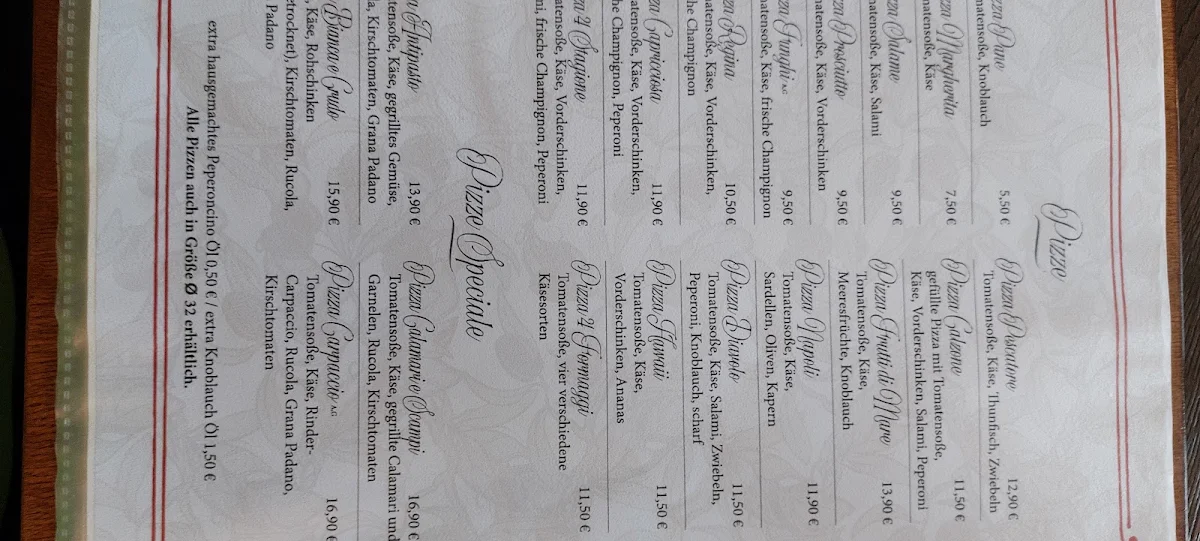 Pizze
Pizza Pane 5,50 €
Tomatensoße, Knoblauch
Pizza Margherita 7,50 €
Tomatensoße, Käse
Pizza Salame 9,50 €
Tomatensoße, Käse, Salami
Pizza Prosciutto 9,50 €
Tomatensoße, Käse, Vorderschinken
Pizza Funghi A,G 9,50 €
Tomatensoße, Käse, frische Champignon
Pizza Regina 10,50 €
Tomatensoße, Käse, Vorderschinken,
che Champignon
Pizza Capricciosa 11,90 €
Tomatensoße, Käse, Vorderschinken,
che Champignon, Peperoni
Pizza 4 Stagione 11,90 €
Tomatensoße, Käse, Vorderschinken,
ni, frische Champignon, Peperoni
Pizza Pescatore 12,90 €
Tomatensoße, Käse, Thunfisch, Zwiebeln
Pizza Calzone 11,50 €
gefüllte Pizza mit Tomatensoße,
Käse, Vorderschinken, Salami, Peperoni
Pizza Frutti di Mare 13,90 €
Tomatensoße, Käse,
Meeresfrüchte, Knoblauch
Pizza Napoli 11,90 €
Tomatensoße, Käse,
Sardellen, Oliven, Kapern
Pizza Diavolo 11,50 €
Tomatensoße, Käse, Salami, Zwiebeln,
Peperoni, Knoblauch, scharf
Pizza Hawaii 11,50 €
Tomatensoße, Käse,
Vorderschinken, Ananas
Pizza 4 Formaggi 11,50 €
Tomatensoße, vier verschiedene
Käsesorten
Pizze Speciale
Antipasto 13,90 €
tensoße, Käse, gegrilltes Gemüse,
a, Kirschtomaten, Grana Padano
Bianca e Crudo 15,90 €
, Käse, Rohschinken
etrocknet), Kirschtomaten, Rucola,
Padano
Pizza Calamari e Scampi 16,90 €
Tomatensoße, Käse, gegrillte Calamari und
Garnelen, Rucola, Kirschtomaten
Pizza Carpaccio A,G 16,90 €
Tomatensoße, Käse, Rinder-
Carpaccio, Rucola, Grana Padano,
Kirschtomaten
extra hausgemachtes Peperoncino Öl 0,50 € / extra Knoblauch Öl 1,50 €
Alle Pizzen auch in Größe Ø 32 erhältlich.